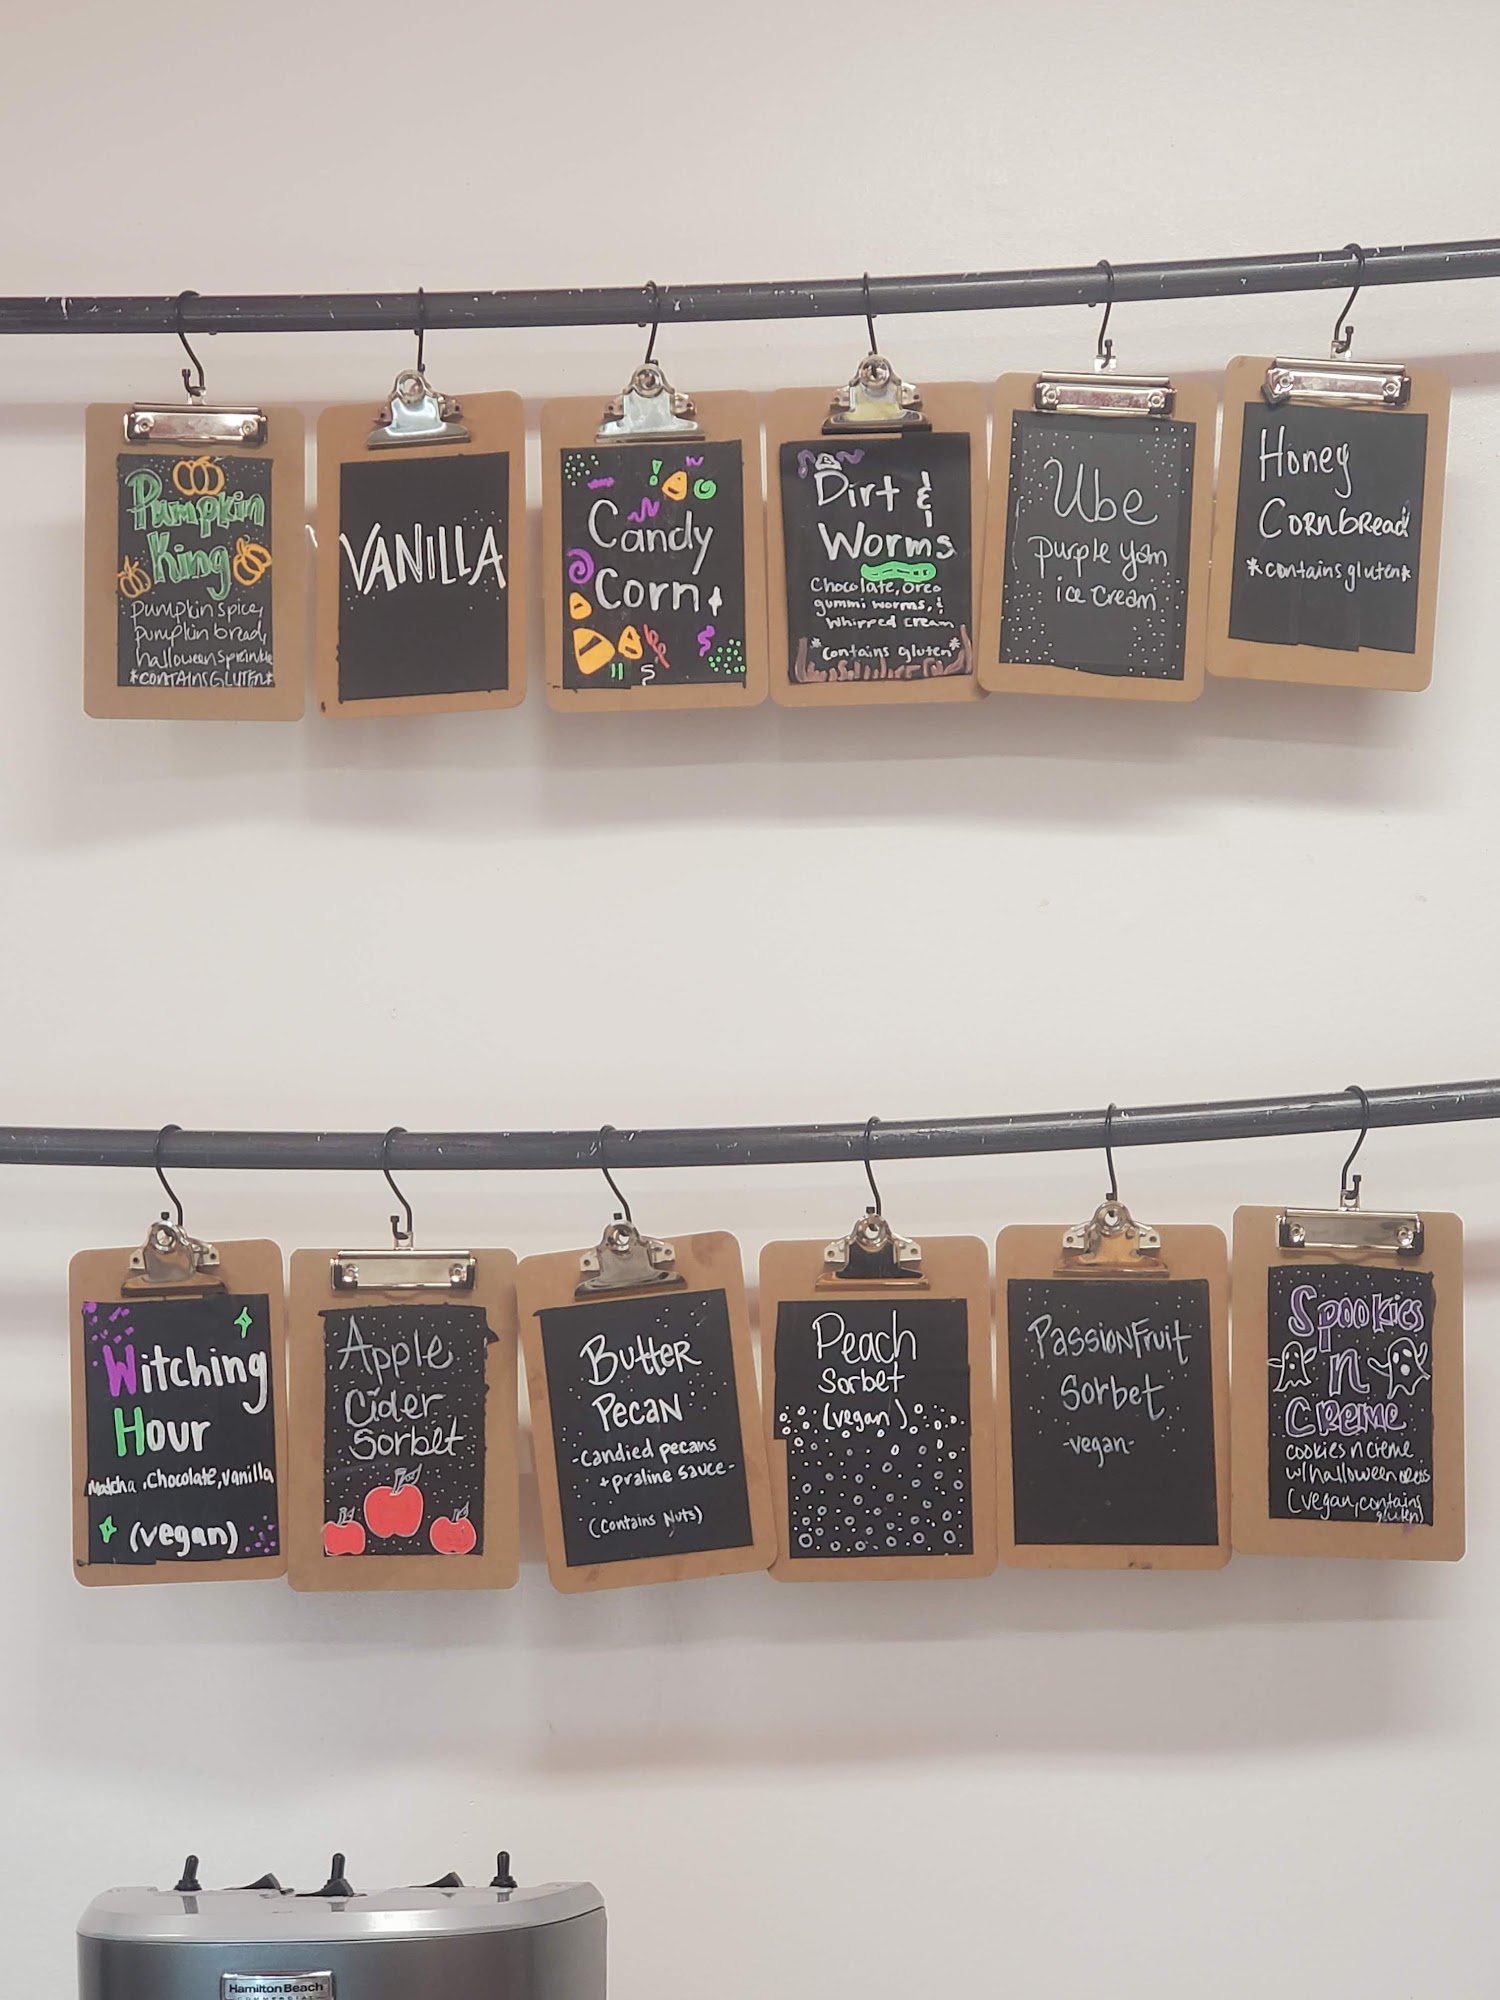 Pumpkin
King
pumpkin spice,
pumpkin bread,
halloween sprinkle
*CONTAINS GLUTEN*
VANILLA
Candy
Corn
Dirt &
Worms
Chocolate, oreo
gummi worms, &
whipped cream
*contains gluten*
Ube
purple yam
ice cream
Honey
Cornbread
*contains gluten*
Witching
Hour
Matcha, Chocolate, vanilla
(vegan)
Apple
Cider
Sorbet
Butter
Pecan
-candied pecans
+ praline sauce-
(contains Nuts)
Peach
Sorbet
(vegan)
Passionfruit
Sorbet
-vegan-
Spookies
n
Creme
cookies n creme
w/ halloween oreos
(vegan, contains
gluten)
Hamilton Beach
COMMERCIAL